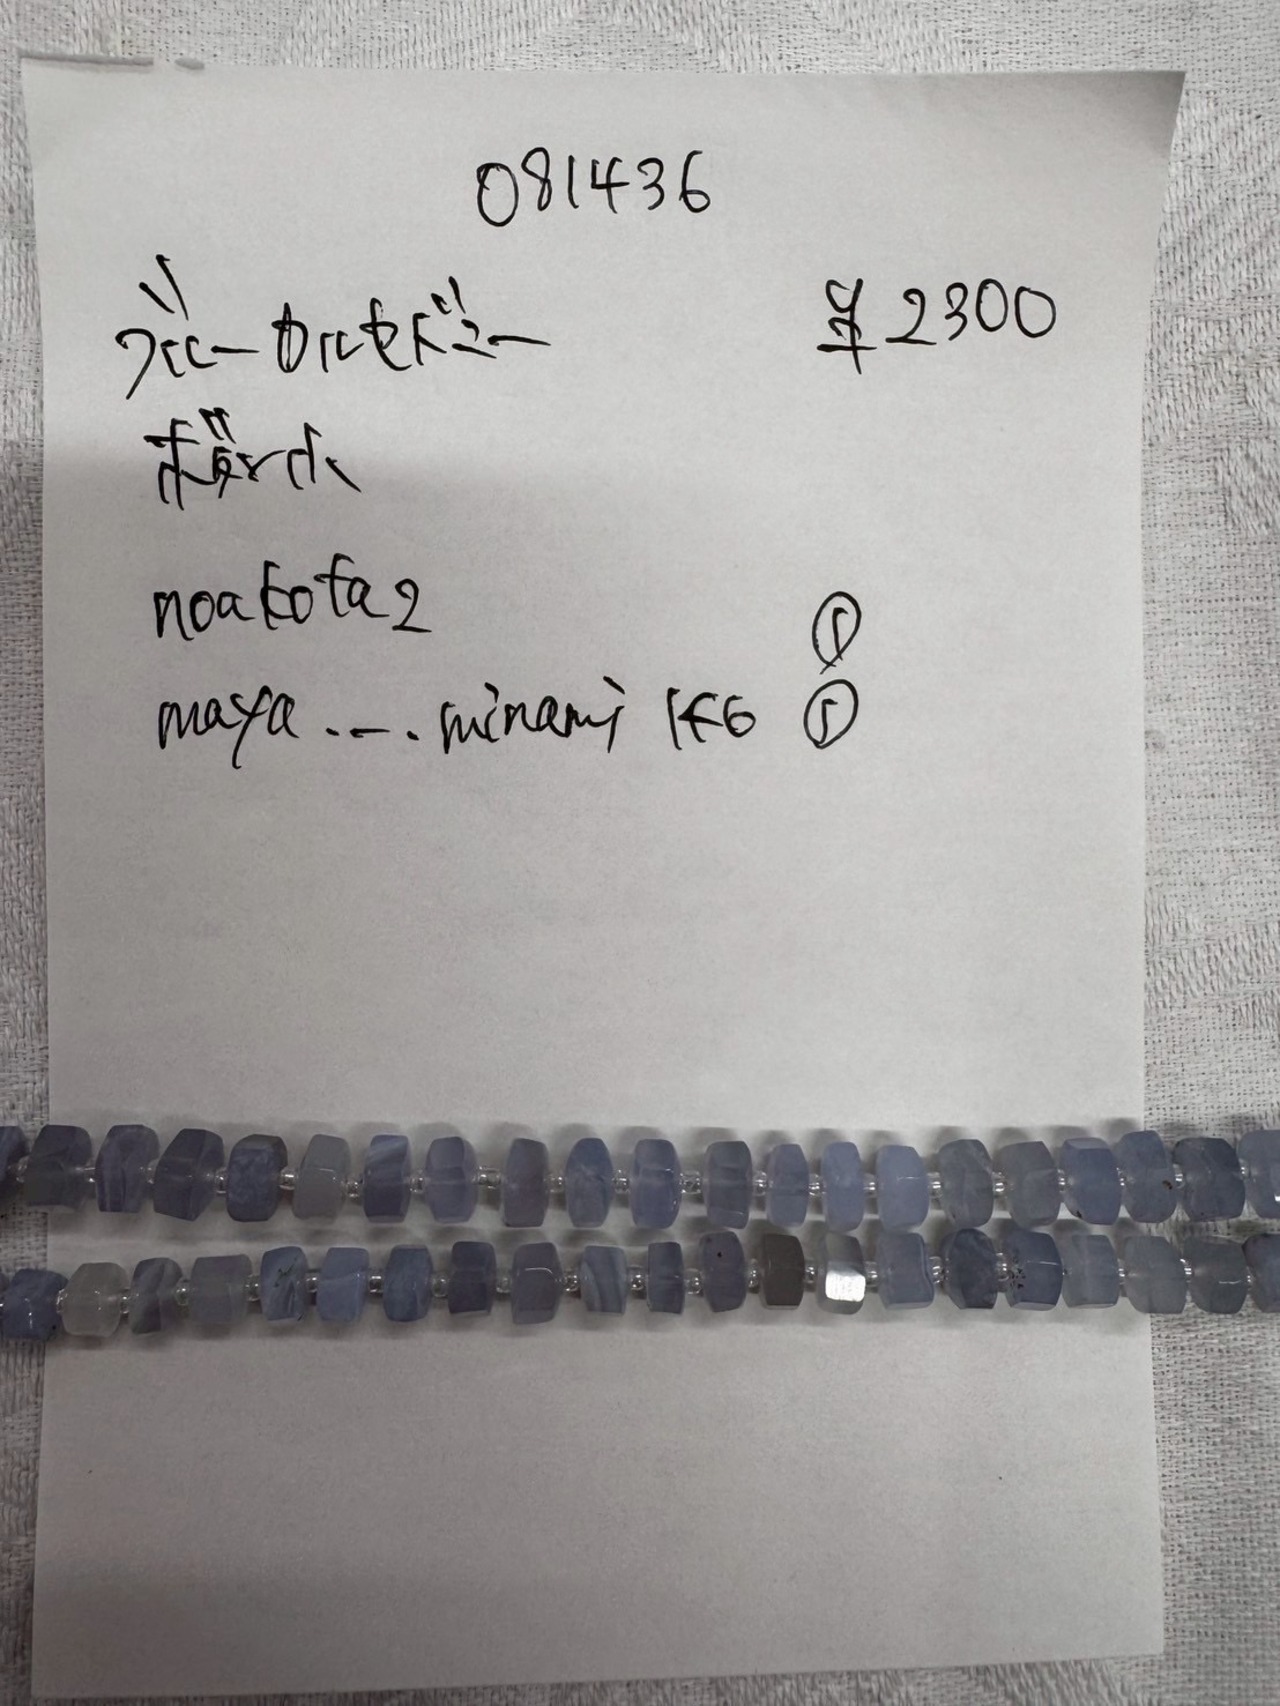 081436
ブルーカルセドニー ¥2300
ボタン
noakota2 ①
maya.--.minami 166 ①